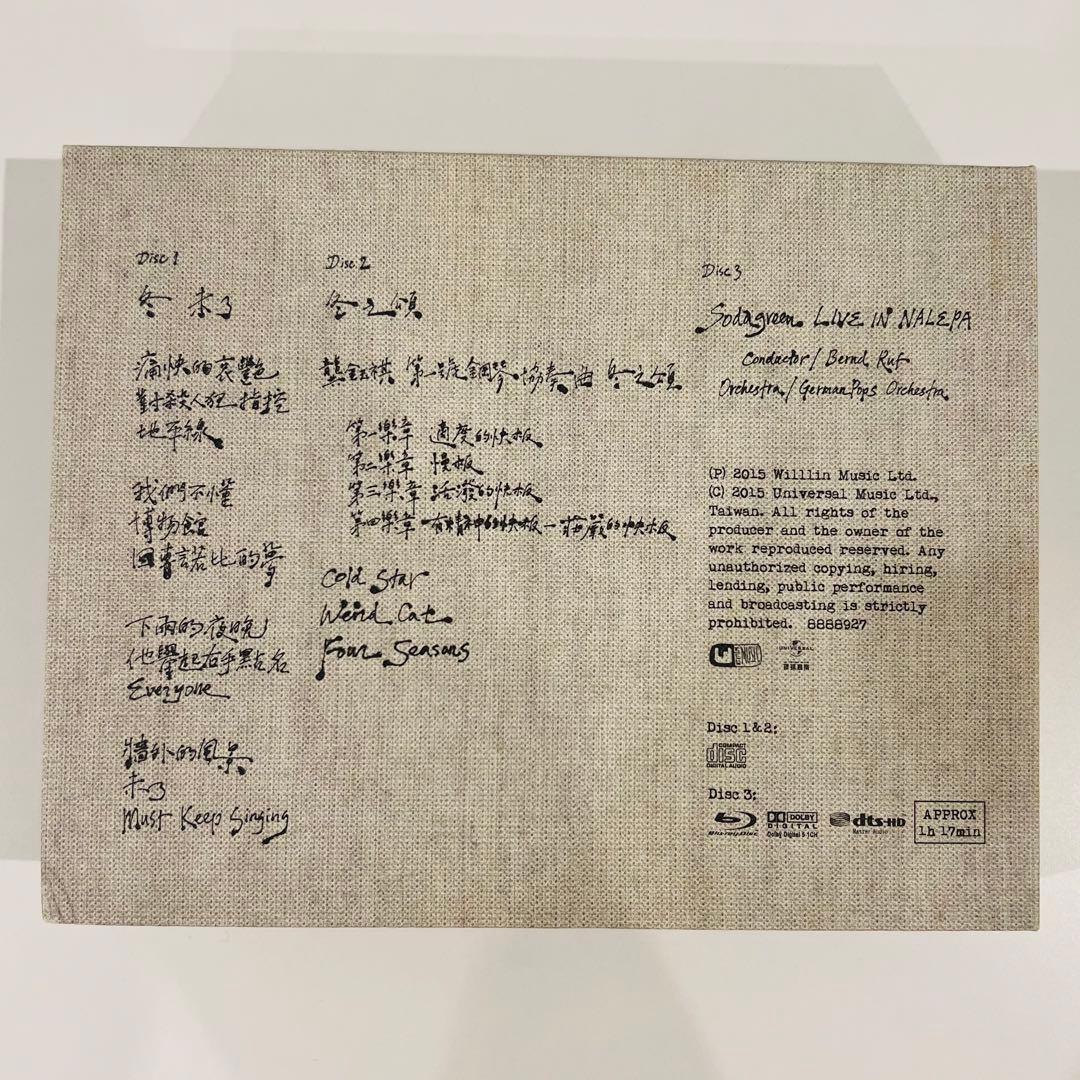 Disc 1
冬 未了
痛快的哀艷
對殺人狂指控
地平線
我們不懂
博物館
回車諾比的夢
下雨的夜晚
他舉起右手點名
Everyone
牆外的風景
未了
Must Keep Singing
Disc 2
冬之頌
龔鈺祺 第一號鋼琴協奏曲 冬之頌
第一樂章 適度的快板
第二樂章 慢板
第三樂章 活潑的快板
第四樂章 有精神的快板－莊嚴的快板
Cold Star
Weird Cat
Four Seasons
Disc 3
Sodagreen LIVE IN NALEPA
Conductor/ Bernd Ruf
Orchestra/ GermanPops Orchestra
(P) 2015 Willlin Music Ltd.
(C) 2015 Universal Music Ltd.,
Taiwan. All rights of the
producer and the owner of the
work reproduced reserved. Any
unauthorized copying, hiring,
lending, public performance
and broadcasting is strictly
prohibited. 8888927
UNIVERSAL
環球唱片
Disc 1&2:
COMPACT
disc
DIGITAL AUDIO
Disc 3:
Blu-ray Disc
DOLBY
DIGITAL
Dolby Digital 5.1CH
dts-HD
Master Audio
APPROX
1h 17min